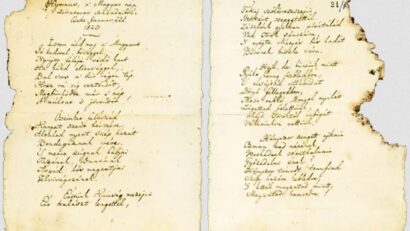 Hymnus, a' Magyar nép
zivataros századaiból.
Cseke, Januar. 22d.
1823.
Isten áldd meg a' Magyart
Jó kedvvel, bőséggel,
Nyujts feléje védő kart
Ha küzd ellenséggel;
Bal sors a' kit régen tép,
Hozz rá víg esztendőt,
Megbűnhődte már e' nép
A' multat 's jövendőt.
Őseinket felhozád
Kárpát szent bérczére,
Általad nyert szép hazát
Bendegúznak vére.
'S merre zúgnak habjai
Tiszának, Dunának,
Árpád hős magzatjai
Felvirágozának.
Értünk Kunság mezein
Ért kalászt lengettél,
Tokaj szőlővesszein
Nektárt csepegtettél.
Zászlónk gyakran plántálád
Vad Török sánczára,
'S nyögte Mátyás bús hadát
Bécsnek büszke vára.
Hajh, de bűneink miatt
Gyúlt harag kebledben,
'S elsújtád villámidat
Dörgő fellegedben,
Most rabló Mongol nyilát
Zúgattad felettünk,
Majd Töröktől rabigát
Vállainkra vettünk.
Hányszor zengett ajkain
Ozman vad népének
Vert hadunk csonthalmain
Győzedelmi ének!
Hányszor támadt tenfiad
Szép hazám kebledre,
'S lettél magzatod miatt
Magzatod hamvvedre.